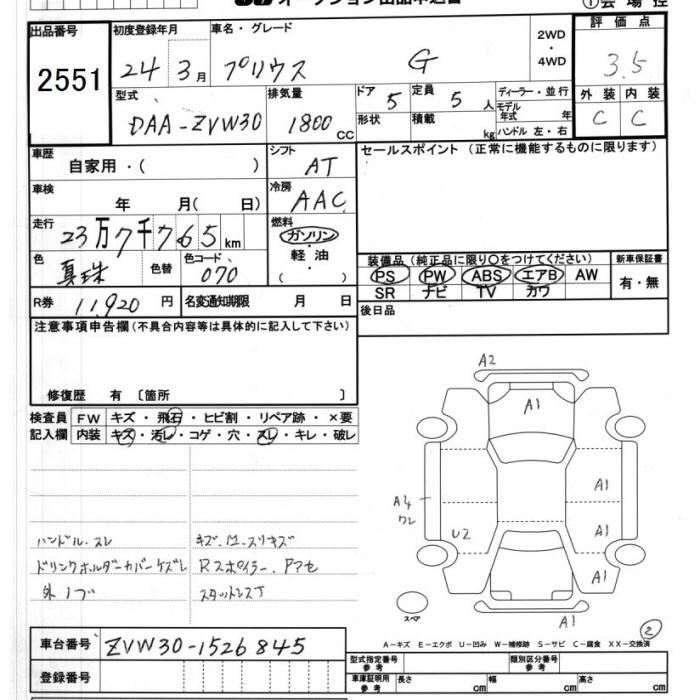 ①会場控
出品番号 初度登録年月 車名・グレード 2WD・4WD 評価点
2551 24年3月 プリウス G 3.5
型式 排気量 ドア 定員 ディーラー・並行 外装 内装
DAA-ZVW30 1800cc 5 5人 モデル年式 年 C C
形状 積載 kg ハンドル 左・右
車歴 シフト セールスポイント(正常に機能するものに限ります)
自家用・( ) AT
車検 冷房
年 月( 日) AAC
走行 燃料
23万7千765km ガソリン
軽油
( )
色 色替 色コード
真珠 070
装備品(純正品に限り○をつけてください) 新車保証書
PS PW ABS エアB AW 有・無
SR ナビ TV カワ
R券 11,920円 名変通知期限 月 日
後日品
注意事項申告欄(不具合内容等は具体的に記入して下さい)
修復歴 有 〔箇所 〕
検査員 FW キズ・飛石・ヒビ割・リペア跡・×要
記入欄 内装 キズ・汚レ・コゲ・穴・スレ・キレ・破レ
ハンドル・スレ
ドリンクホルダーカバーケズレ
R スポイラー、Pアセ
スタットレスJ
A2
A1
A4
ワレ
U2
A1
A1
A1
A1
スペア
②
A-キズ E-エクボ U-凹み W-補修跡 S-サビ C-腐食 XX-交換済
車台番号 ZVW30-1526845
型式指定番号 参考 類別区分番号 参考
登録番号 車庫証明用 参考 長さ cm 幅 cm 高さ cm